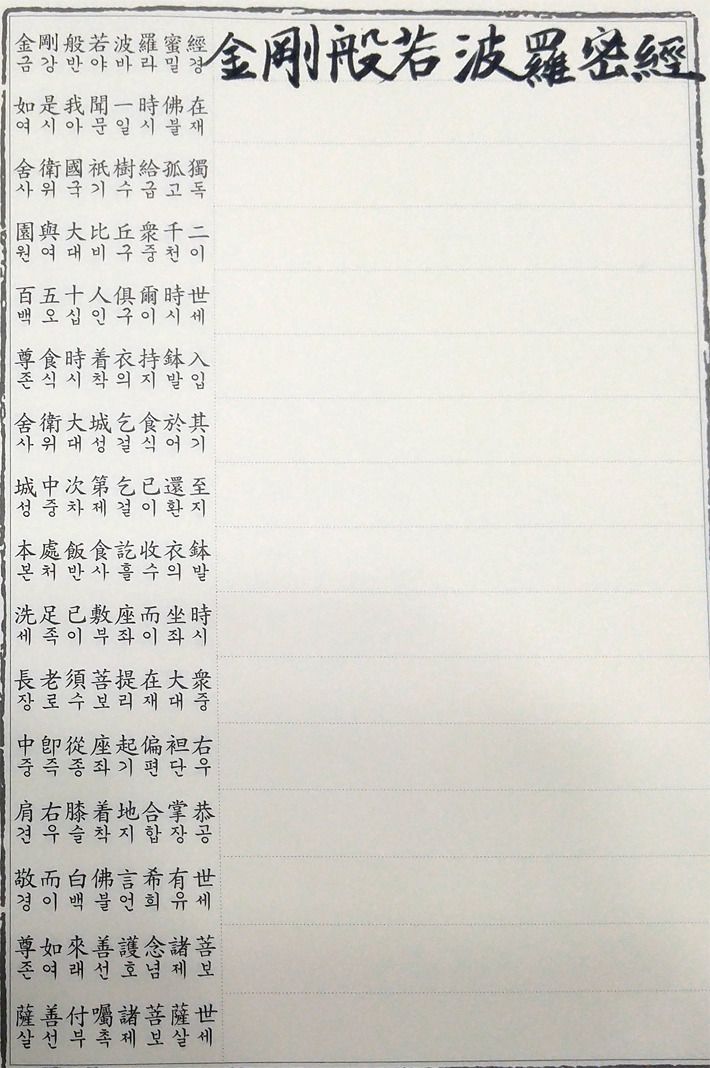 金剛般若波羅蜜經 金剛般若波羅密經
금강반야바라밀경
如是我聞一時佛在
여시아문일시불재
舍衛國祇樹給孤獨
사위국기수급고독
園與大比丘衆千二
원여대비구중천이
百五十人俱爾時世
백오십인구이시세
尊食時着衣持鉢入
존식시착의지발입
舍衛大城乞食於其
사위대성걸식어기
城中次第乞已還至
성중차제걸이환지
本處飯食訖收衣鉢
본처반사흘수의발
洗足已敷座而坐時
세족이부좌이좌시
長老須菩提在大衆
장로수보리재대중
中卽從座起偏袒右
중즉종좌기편단우
肩右膝着地合掌恭
견우슬착지합장공
敬而白佛言希有世
경이백불언희유세
尊如來善護念諸菩
존여래선호념제보
薩善付囑諸菩薩世
살선부촉제보살세